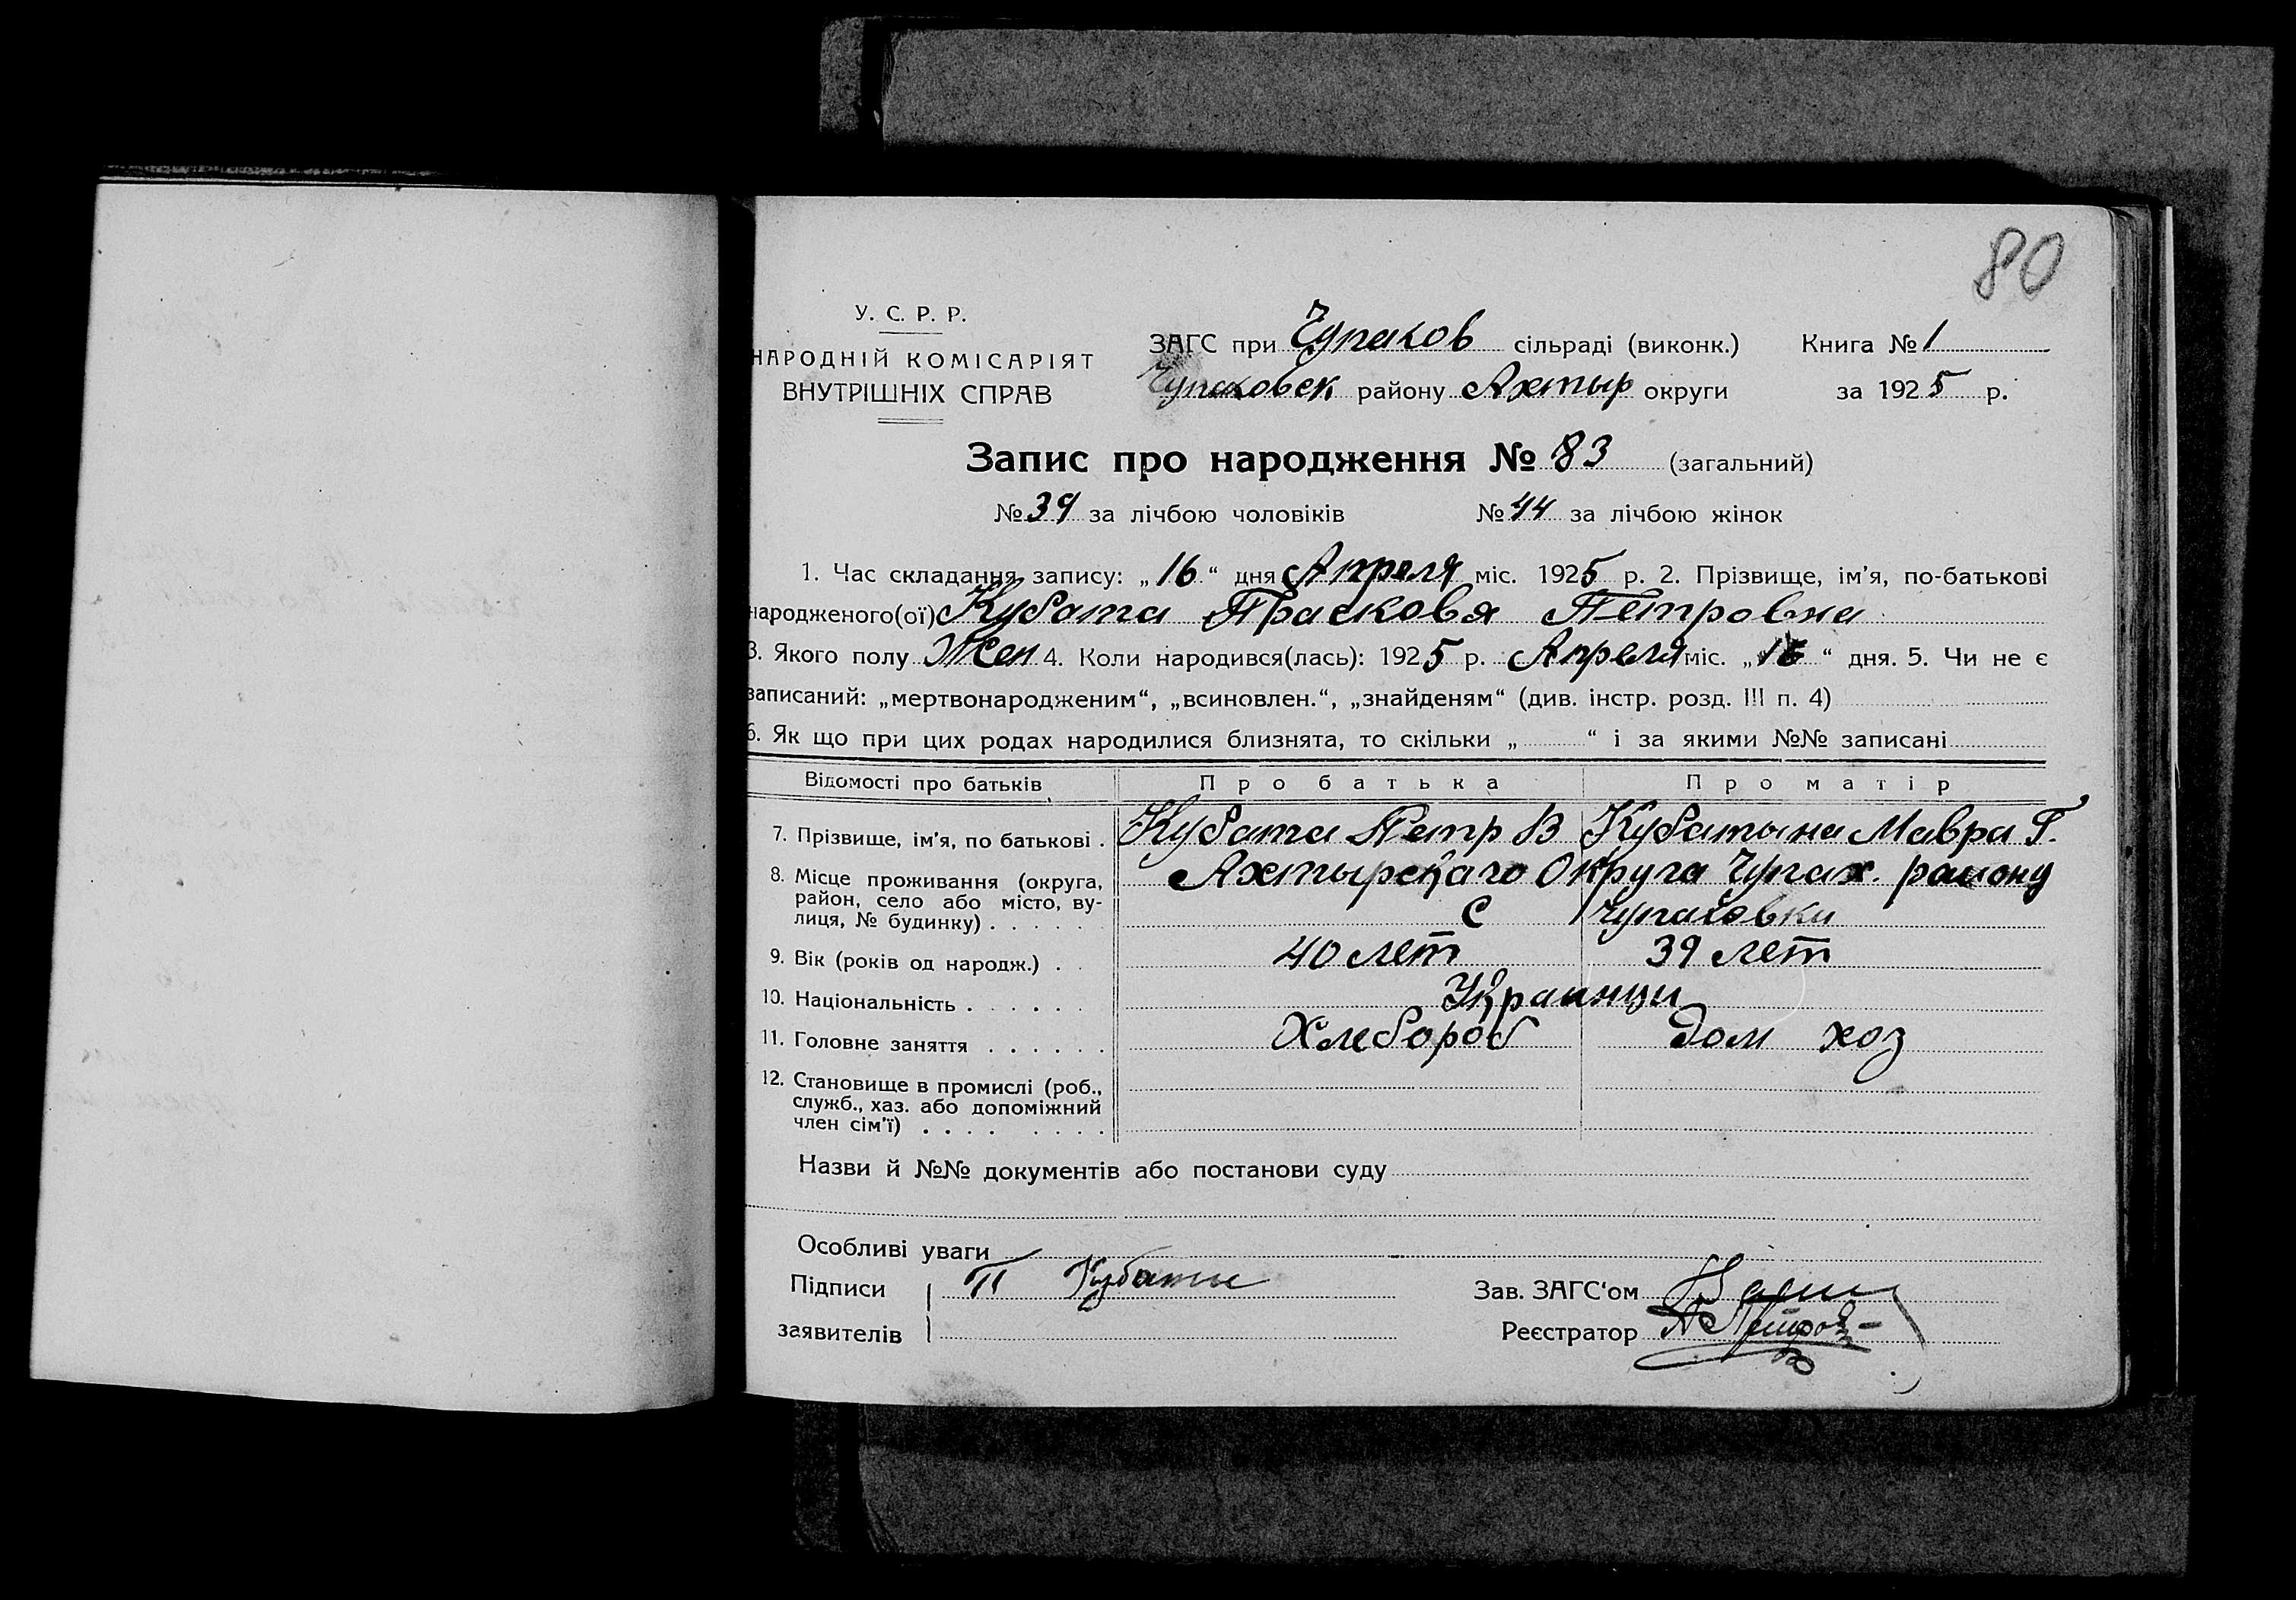 80
У. С. Р. Р.
НАРОДНІЙ КОМІСАРІЯТ
ВНУТРІШНІХ СПРАВ
ЗАГС при Чупаков сільраді (виконк.) Книга № 1
Чупаковск району Ахтыр округи за 1925 р.
Запис про народження № 83 (загальний)
№ 39 за лічбою чоловіків № 44 за лічбою жінок
1. Час складання запису: „16“ дня Апреля міс. 1925 р. 2. Прізвище, ім’я, по-батькові
народженого(ої) Кубата Прасковя Петровна
3. Якого полу Жен 4. Коли народився(лась): 1925 р. Апреля міс. „16“ дня. 5. Чи не є
записаний: „мертвонародженим“, „всиновлен.“, „знайденям“ (див. інстр. розд. III п. 4)
6. Як що при цих родах народилися близнята, то скільки „ “ і за якими №№ записані
Відомості про батьків Про батька Про матір
7. Прізвище, ім’я, по батькові . Кубата Петр В Кубатына Мавра Г.
8. Місце проживання (округа, район, село або місто, вулиця, № будинку) . . . . . Ахтырскаго Округа Чупах. району
С Чупаховки
9. Вік (років од народж.) . . 40 лет 39 лет
10. Національність . . . . . . Украинци
11. Головне заняття . . . . . . Хлебороб Дом хоз
12. Становище в промислі (роб.,
служб., хаз. або допоміжний
член сім’ї) . . . . . . . .
Назви й №№ документів або постанови суду
Особливі уваги
Підписи П Кубата Зав. ЗАГС‘ом
заявителів Реєстратор